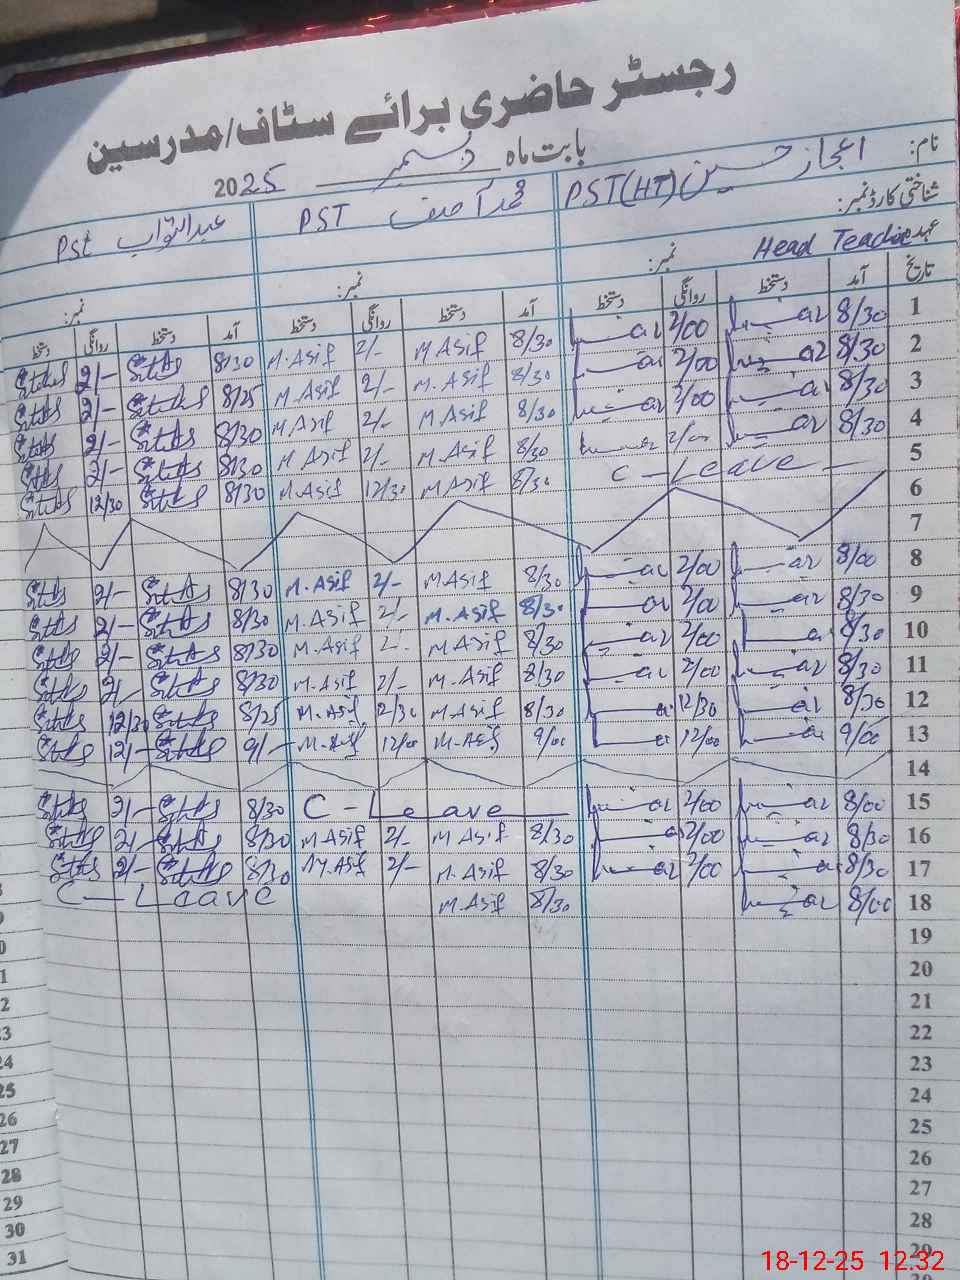 رجسٹر حاضری برائے سٹاف/مدرسین
بابت ماہ دسمبر 2025
نام: اعجاز حسین PST(HT) محمد آصف PST عبدالتواب PST
شناختی کارڈ نمبر:
عہدہ: Head Teacher
نمبر: نمبر: نمبر:
تاریخ آمد دستخط روانگی دستخط آمد دستخط روانگی دستخط آمد دستخط روانگی دستخط
1 8/30 2/00 8/30 M Asif 2/- M. Asif 8/30 2/-
2 8/30 2/00 8/30 M. Asif 2/- M. Asif 8/25 2/-
3 8/30 2/00 8/30 M. Asif 2/- M. Asif 8/30 2/-
4 8/30 2/00 8/30 M. Asif 2/- M. Asif 8/30 2/-
5 C-Leave 8/30 M. Asif 12/30 M. Asif 8/30 12/30
6
7
8 8/00 2/00 8/30 M Asif 2/- M. Asif 8/30 2/-
9 8/30 2/00 8/30 M. Asif 2/- M. Asif 8/30 2/-
10 8/30 2/00 8/30 M Asif M. Asif 8/30 2/-
11 8/30 2/00 8/30 M. Asif 2/- M. Asif 8/30 2/-
12 8/30 12/30 8/30 M. Asif 12/30 M. Asif 8/25 12/30
13 9/00 12/00 9/00 M. Asif 12/00 M. Asif 9/- 12/-
14
15 8/00 2/00 C-Leave 8/30 2/-
16 8/30 2/00 8/30 M. Asif 2/- M Asif 8/30 2/-
17 8/30 2/00 8/30 M. Asif 2/- M. Asif 8/30 2/-
18 8/00 8/30 M. Asif C-Leave
19
20
21
22
23
24
25
26
27
28
29
18-12-25 12:32